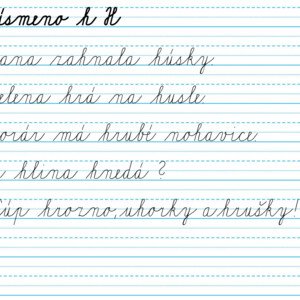 ísmeno h H
ana zahnala húsky.
elena hrá na husle.
orár má hrubé nohavice.
hlina hnedá ?
úp hrozno, uhorky a hrušky!